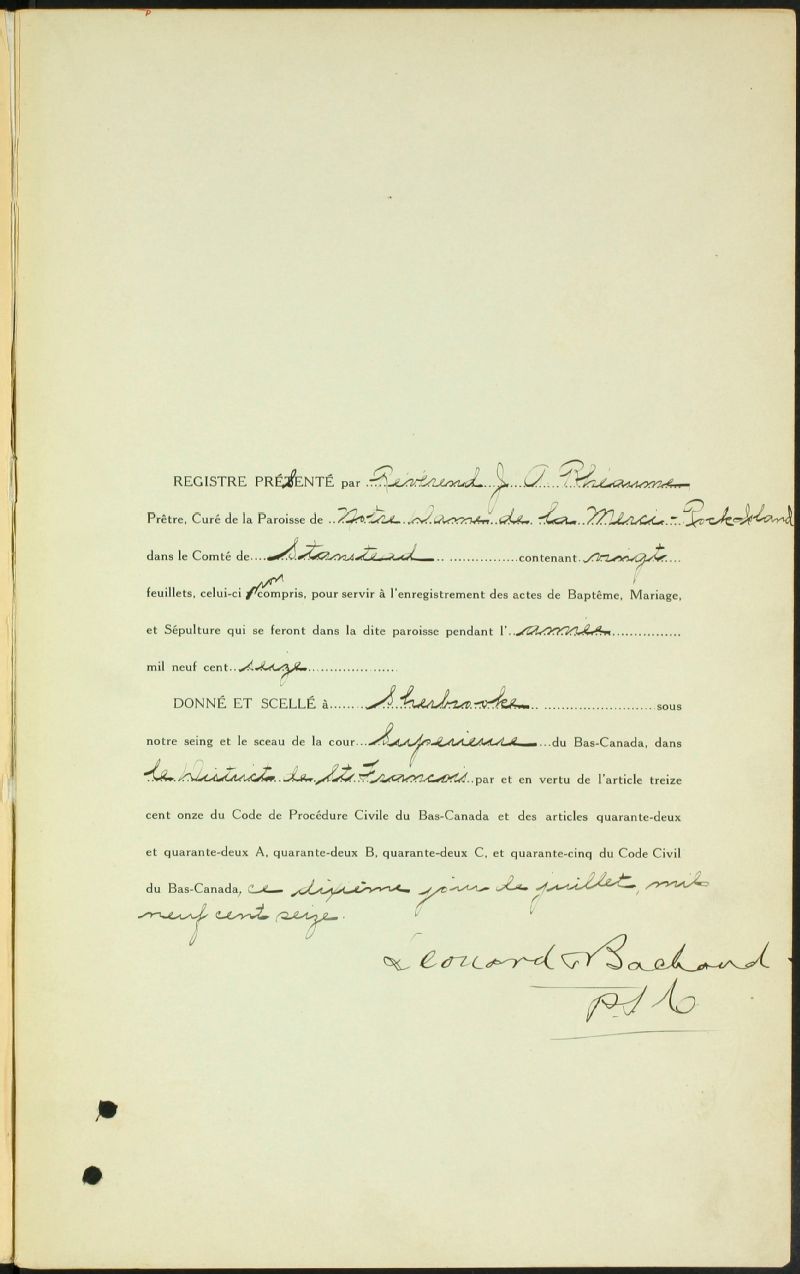 REGISTRE PRÉSENTÉ par Révérend J. A. Rhéaume
Prêtre, Curé de la Paroisse de Notre Dame de la Merci - Rock-Island
dans le Comté de Stanstead contenant vingt
feuillets, celui-ci non compris, pour servir à l'enregistrement des actes de Baptême, Mariage,
et Sépulture qui se feront dans la dite paroisse pendant l'année
mil neuf cent seize
DONNÉ ET SCELLÉ à Sherbrooke sous
notre seing et le sceau de la cour Superieure du Bas-Canada, dans
le District de St François par et en vertu de l'article treize
cent onze du Code de Procédure Civile du Bas-Canada et des articles quarante-deux
et quarante-deux A, quarante-deux B, quarante-deux C, et quarante-cinq du Code Civil
du Bas-Canada, ce dixième jour de juillet, mil
neuf cent seize.
Léonard & Bachand
P.S.C